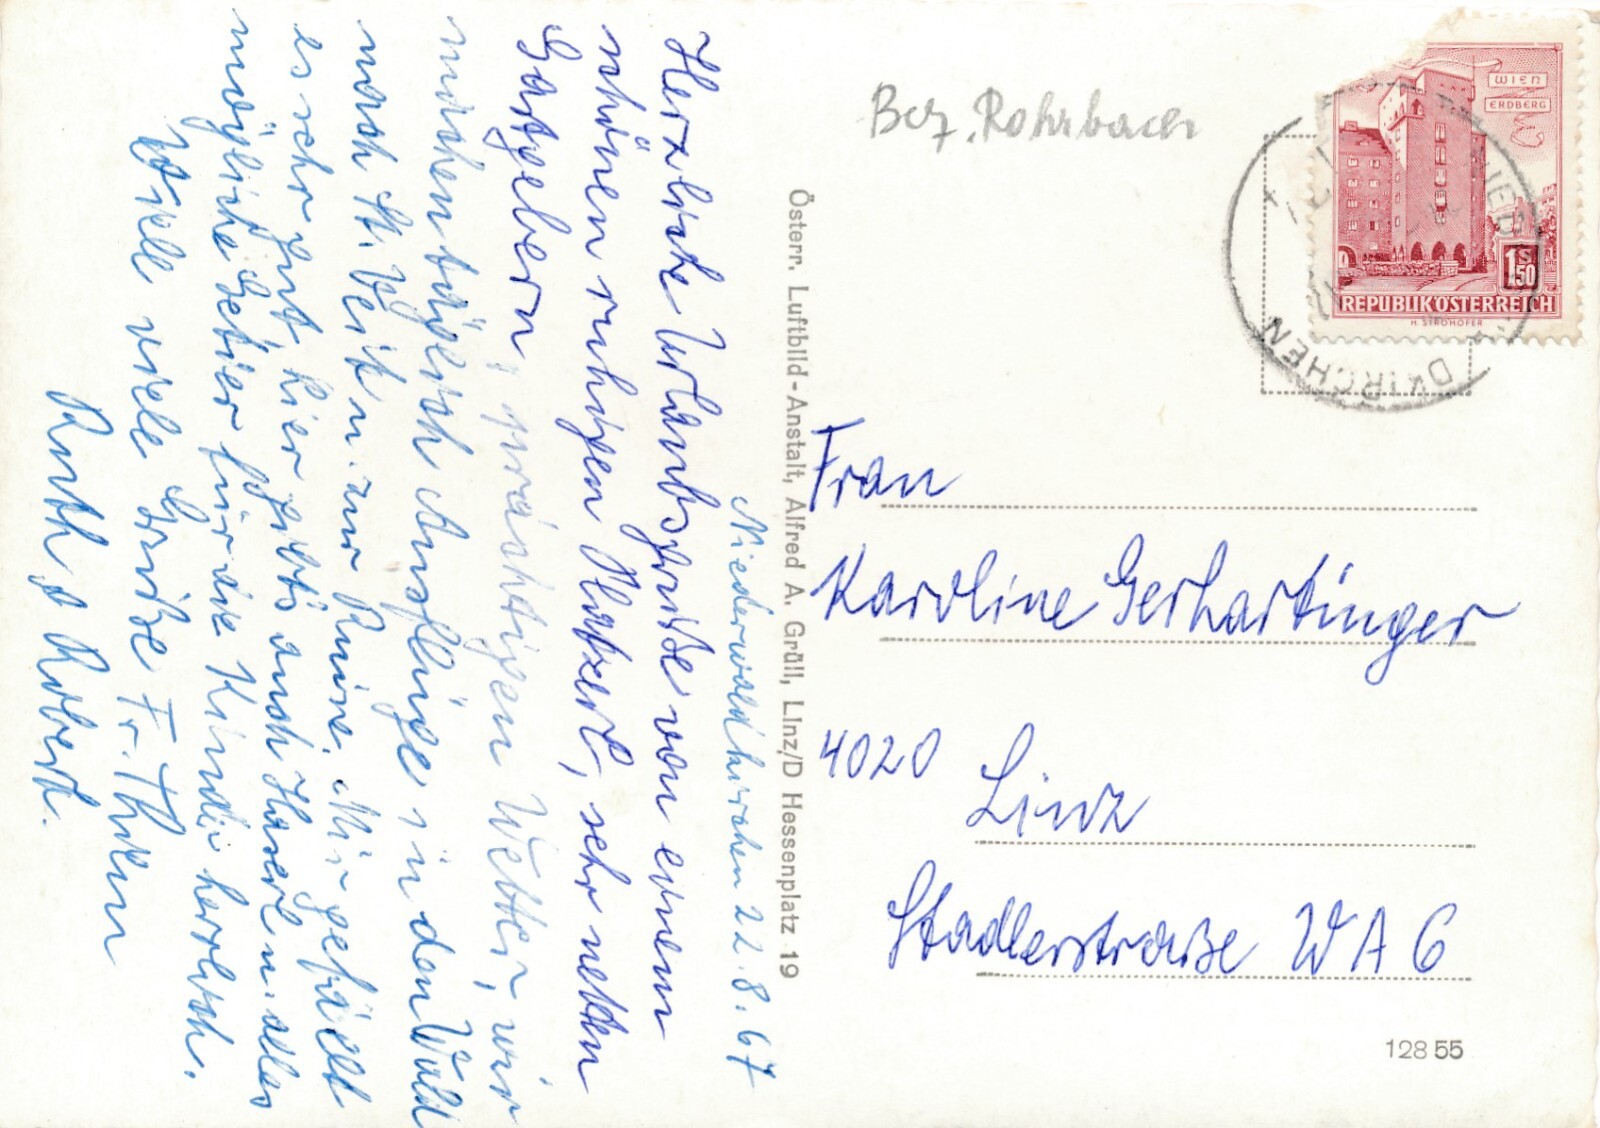 Niederwaldkirchen 22.8.67
Herzliche Urlaubsgrüße von einem
schönen ruhigen Platzerl, sehr netten
Gastgebern, prächtigen Wetter, wir
machen täglich Ausflüge in den Wald
nach St. Veit u. zur Ruine. Mir gefällt
es sehr gut hier gibts auch Haserl u. alles
mögliche Getier für die Kinder herrlich.
Viele viele Grüße Fr.
Ruth & Robert.
Österr. Luftbild-Anstalt, Alfred A. Grüll, Linz/D Hessenplatz 19
Bez. Rohrbach
WIEN
ERDBERG
1 S 50
REPUBLIK ÖSTERREICH
H. STROHOFER
DKIRCHEN
Frau
Karoline Gerhartinger
4020 Linz
Stadlerstraße WA 6
128 55